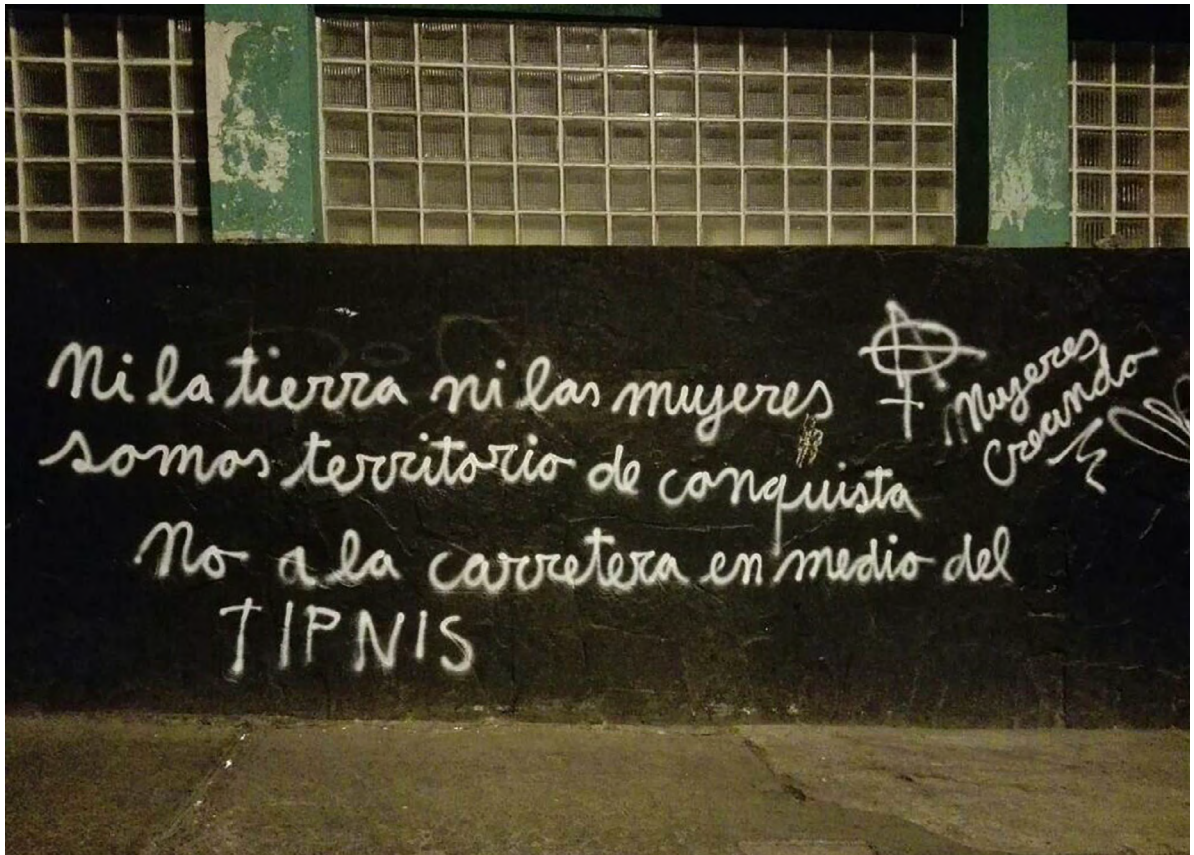 Ni la tierra ni las mujeres
somos territorio de conquista
No a la carretera en medio del
TIPNIS
Mujeres
Creando